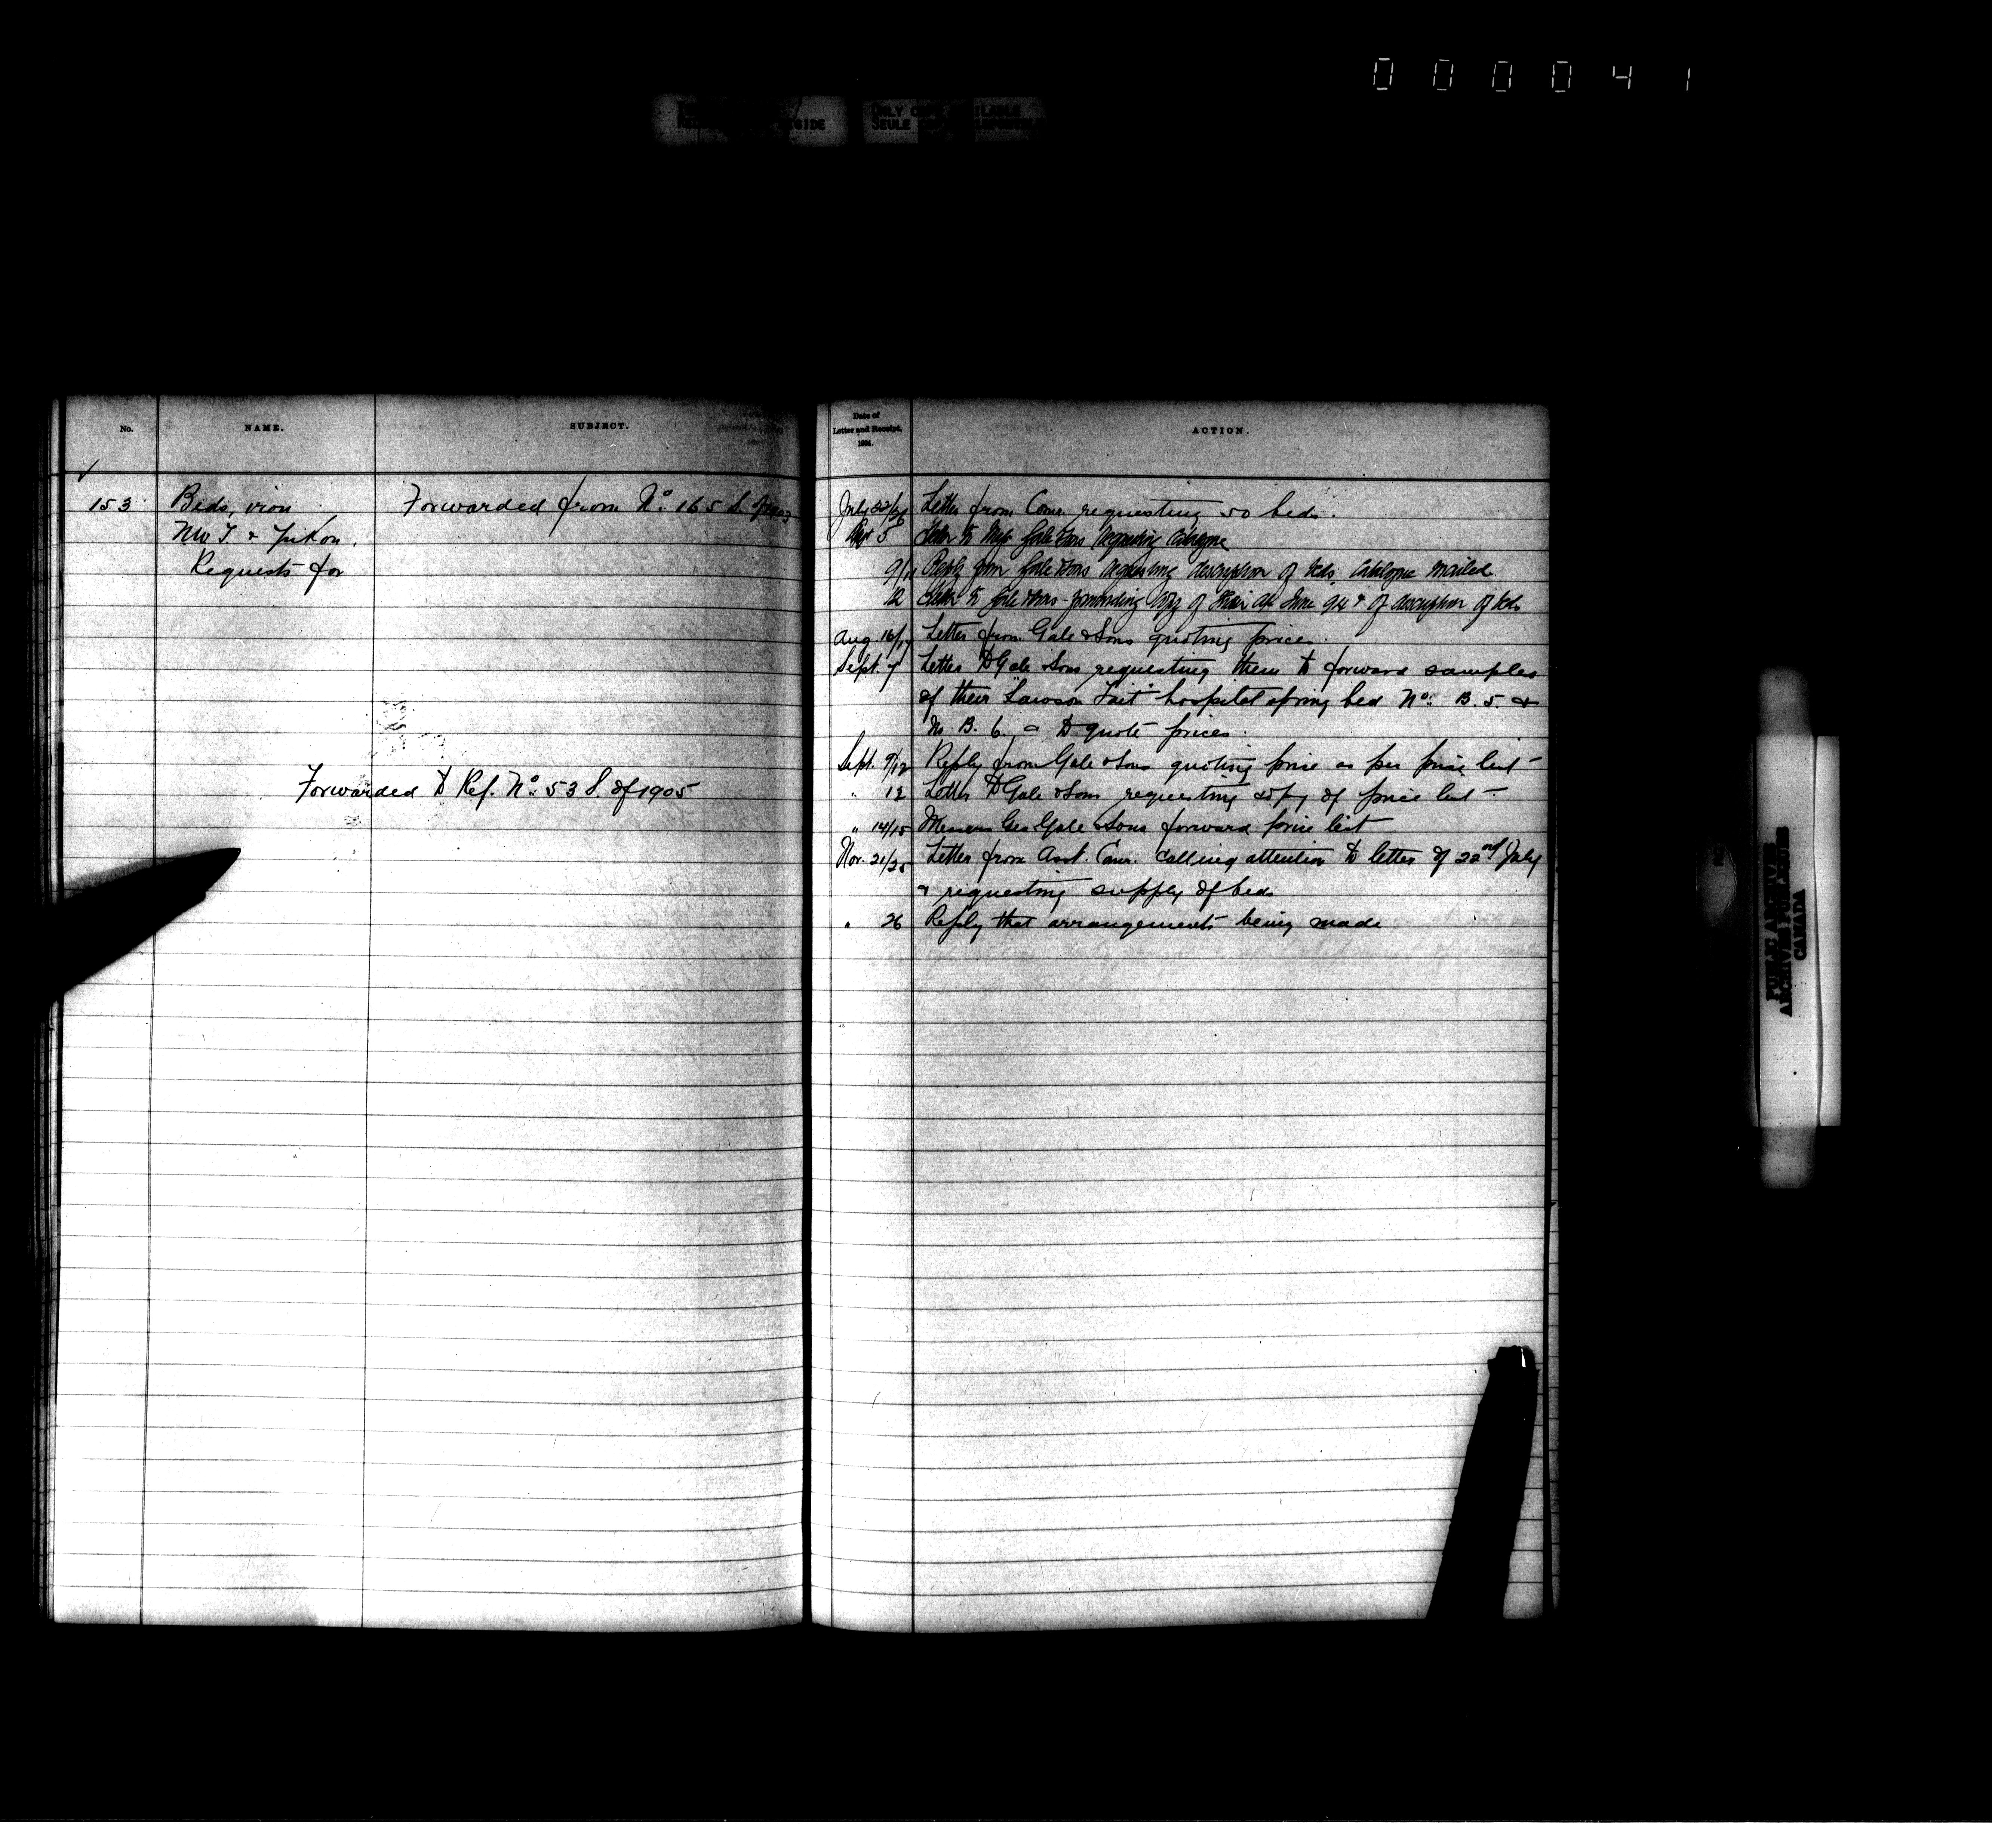 000041
ONLY COPY AVAILABLE
SEULE
No.
NAME.
SUBJECT.
153
Beds, iron
NW T. & Yukon,
Requests for
Forwarded from No. 165 S. of 1903
Forwarded to Ref. No. 53 S. of 1905
Date of
Letter and Receipt,
1904.
ACTION.
July 22/26 Letter from Comr. requesting 50 beds.
5 Letter to Gale & Sons requesting Catalogue
9/ Reply from Gale & Sons requesting description of beds. Catalogue mailed
12 Letter to Gale & Sons forwarding copy of of June & of description of beds
Aug 16/17 Letter from Gale & Sons quoting prices.
Sept. 7 Letter to Gale & Sons requesting them to forward samples
of their "Lawson Tait" hospital spring bed No. B. 5. &
No B. 6, & to quote prices.
Sept. 9/12 Reply from Gale & Sons quoting price as per price list -
" 12 Letter to Gale & Sons requesting copy of price list -
" 14/15 Messrs Geo Gale & Sons forward price list
Nov. 21/25 Letter from Asst. Comr. calling attention to letter of 22nd July
& requesting supply of beds
" 26 Reply that arrangements being made
PUBLIC ARCHIVES
ARCHIVES PUBLIQUES
CANADA